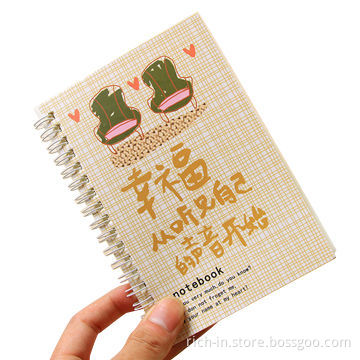 幸福
从听见自己
的声音开始
notebook
you very much, do you know?
not froget me,
your name at my heart!
rich-in.store.bossgoo.com